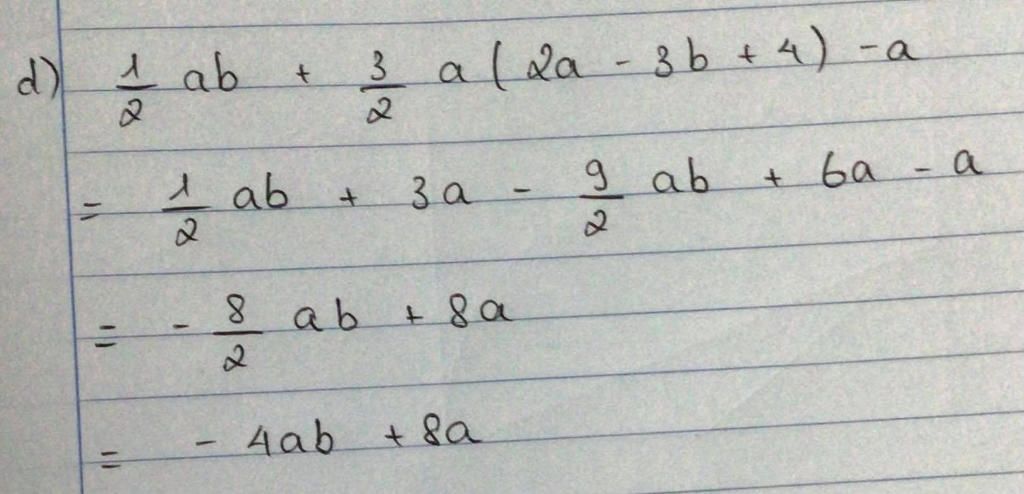 d) 1/2 ab + 3/2 a ( 2a - 3b + 4 ) - a
= 1/2 ab + 3a - 9/2 ab + 6a - a
= - 8/2 ab + 8a
= - 4ab + 8a